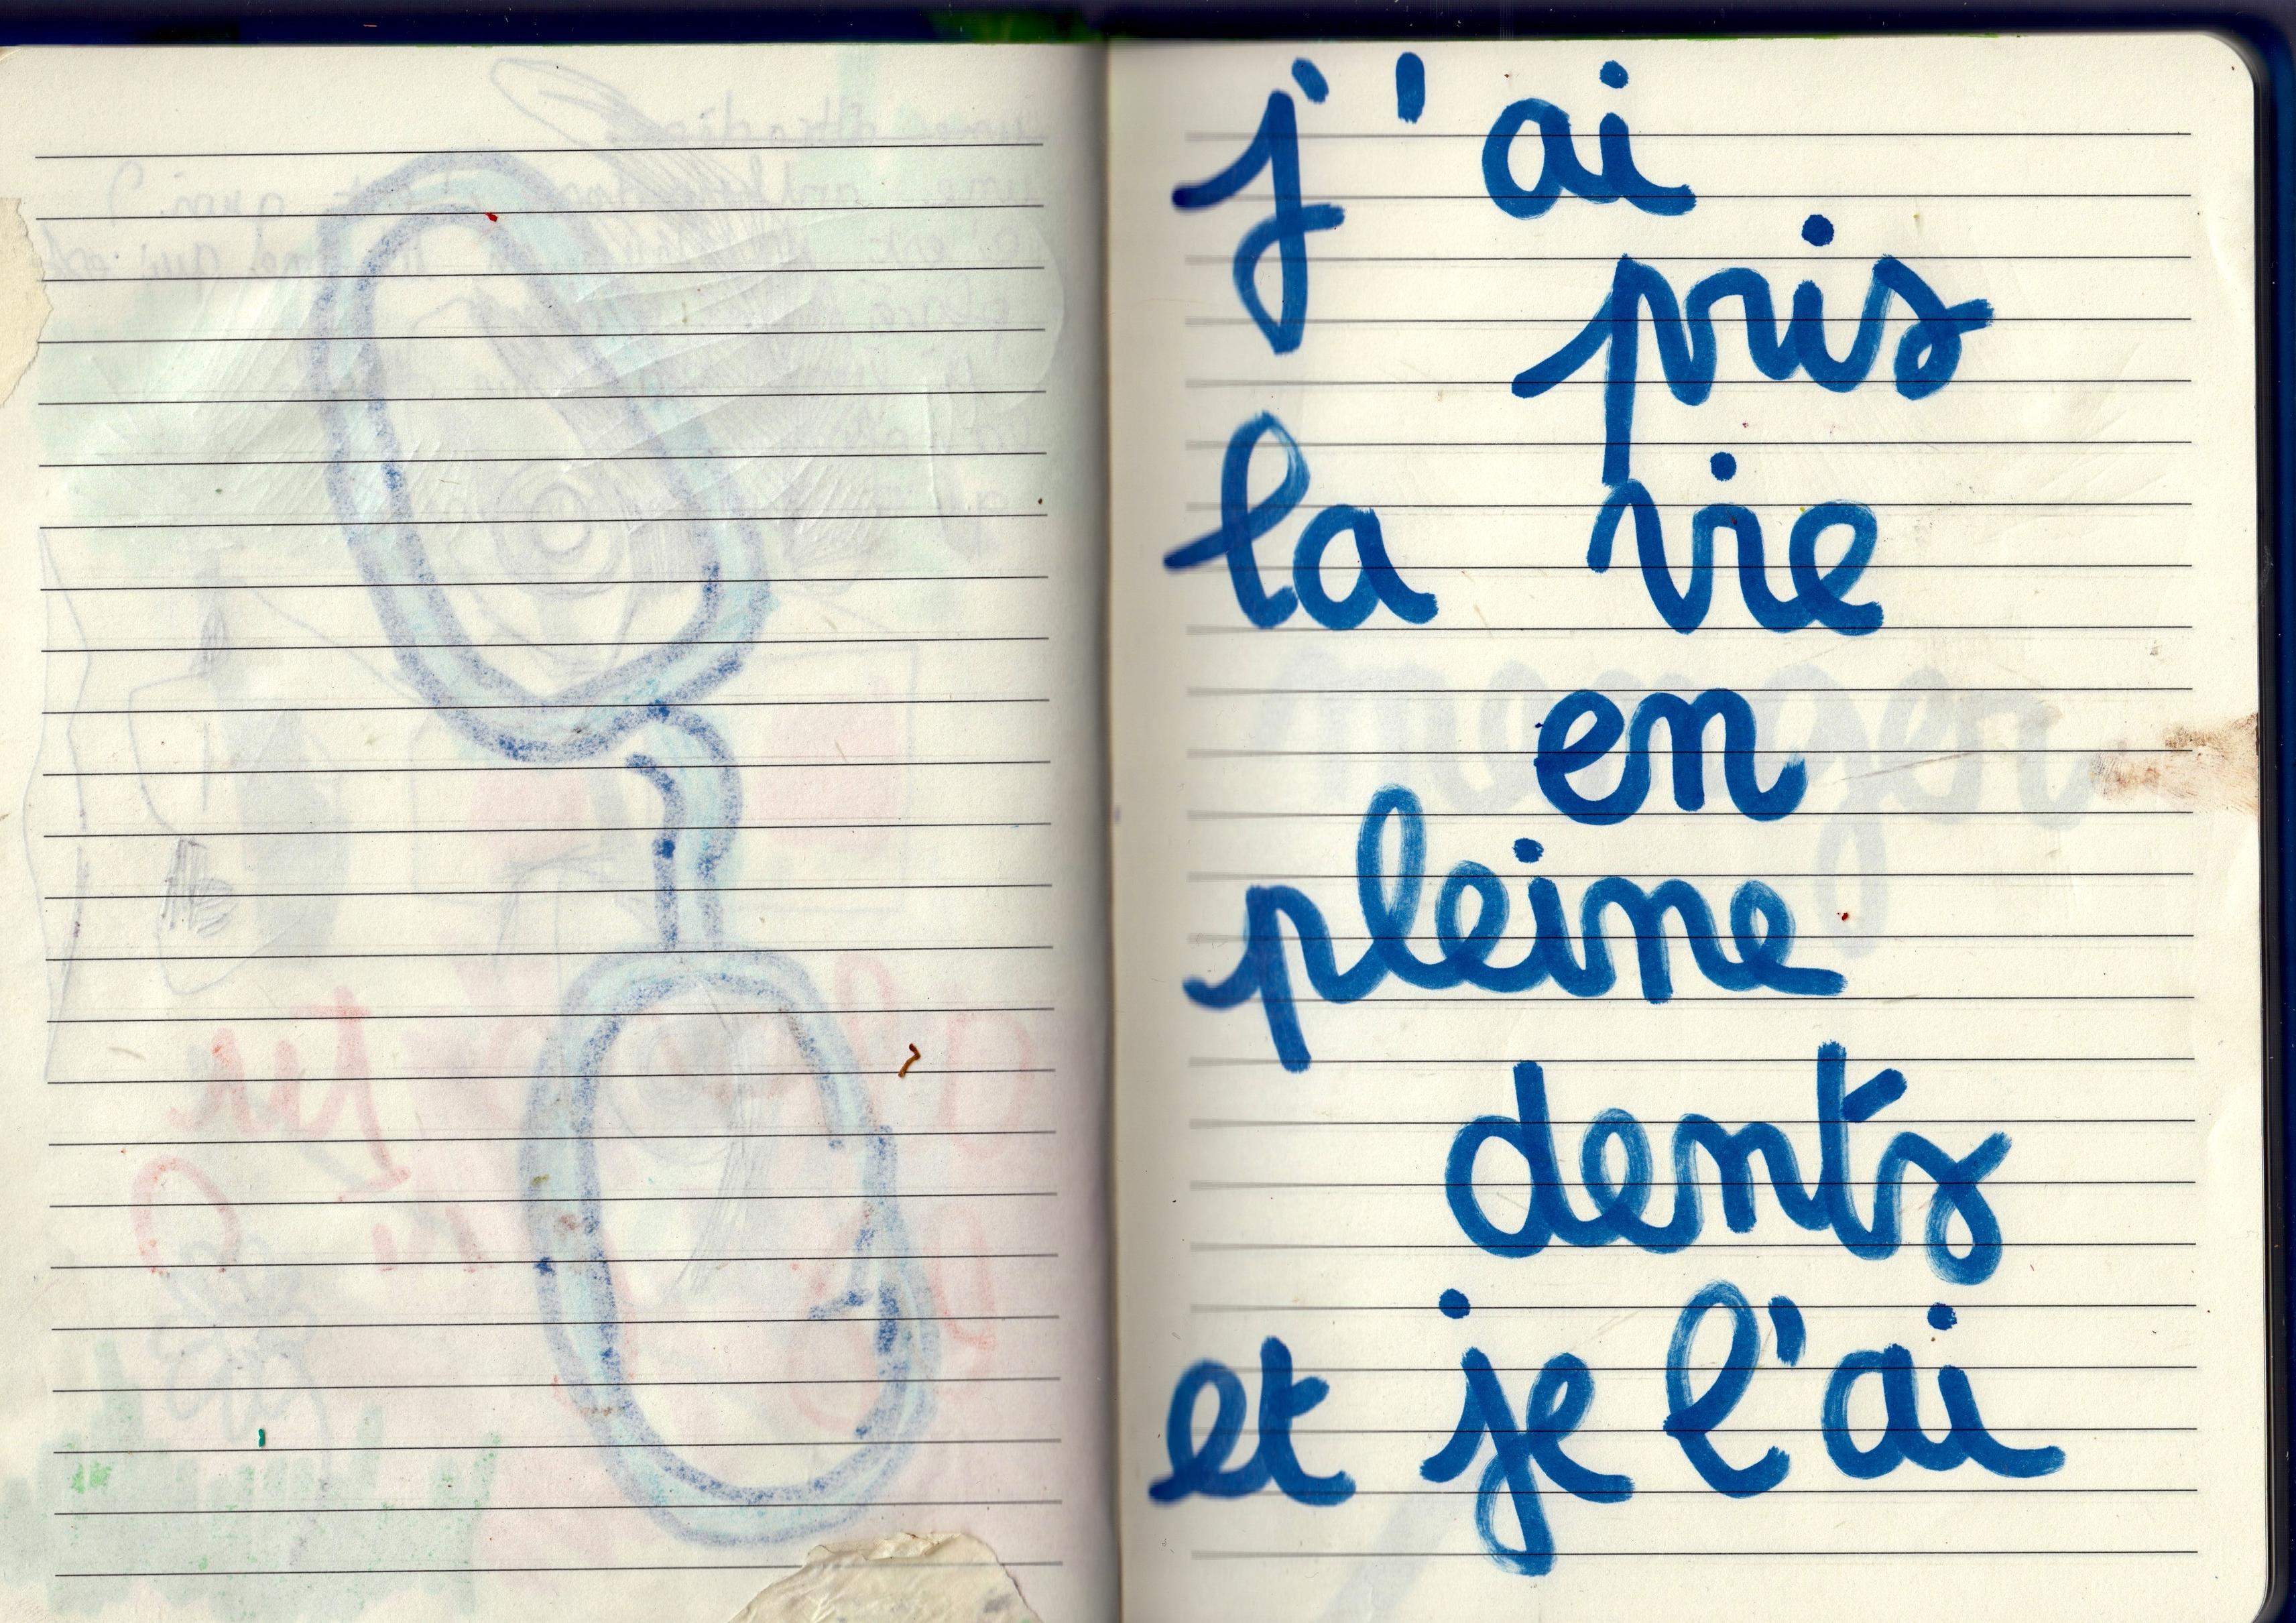 j'ai
pris
la vie
en
pleine
dents
et je l'ai